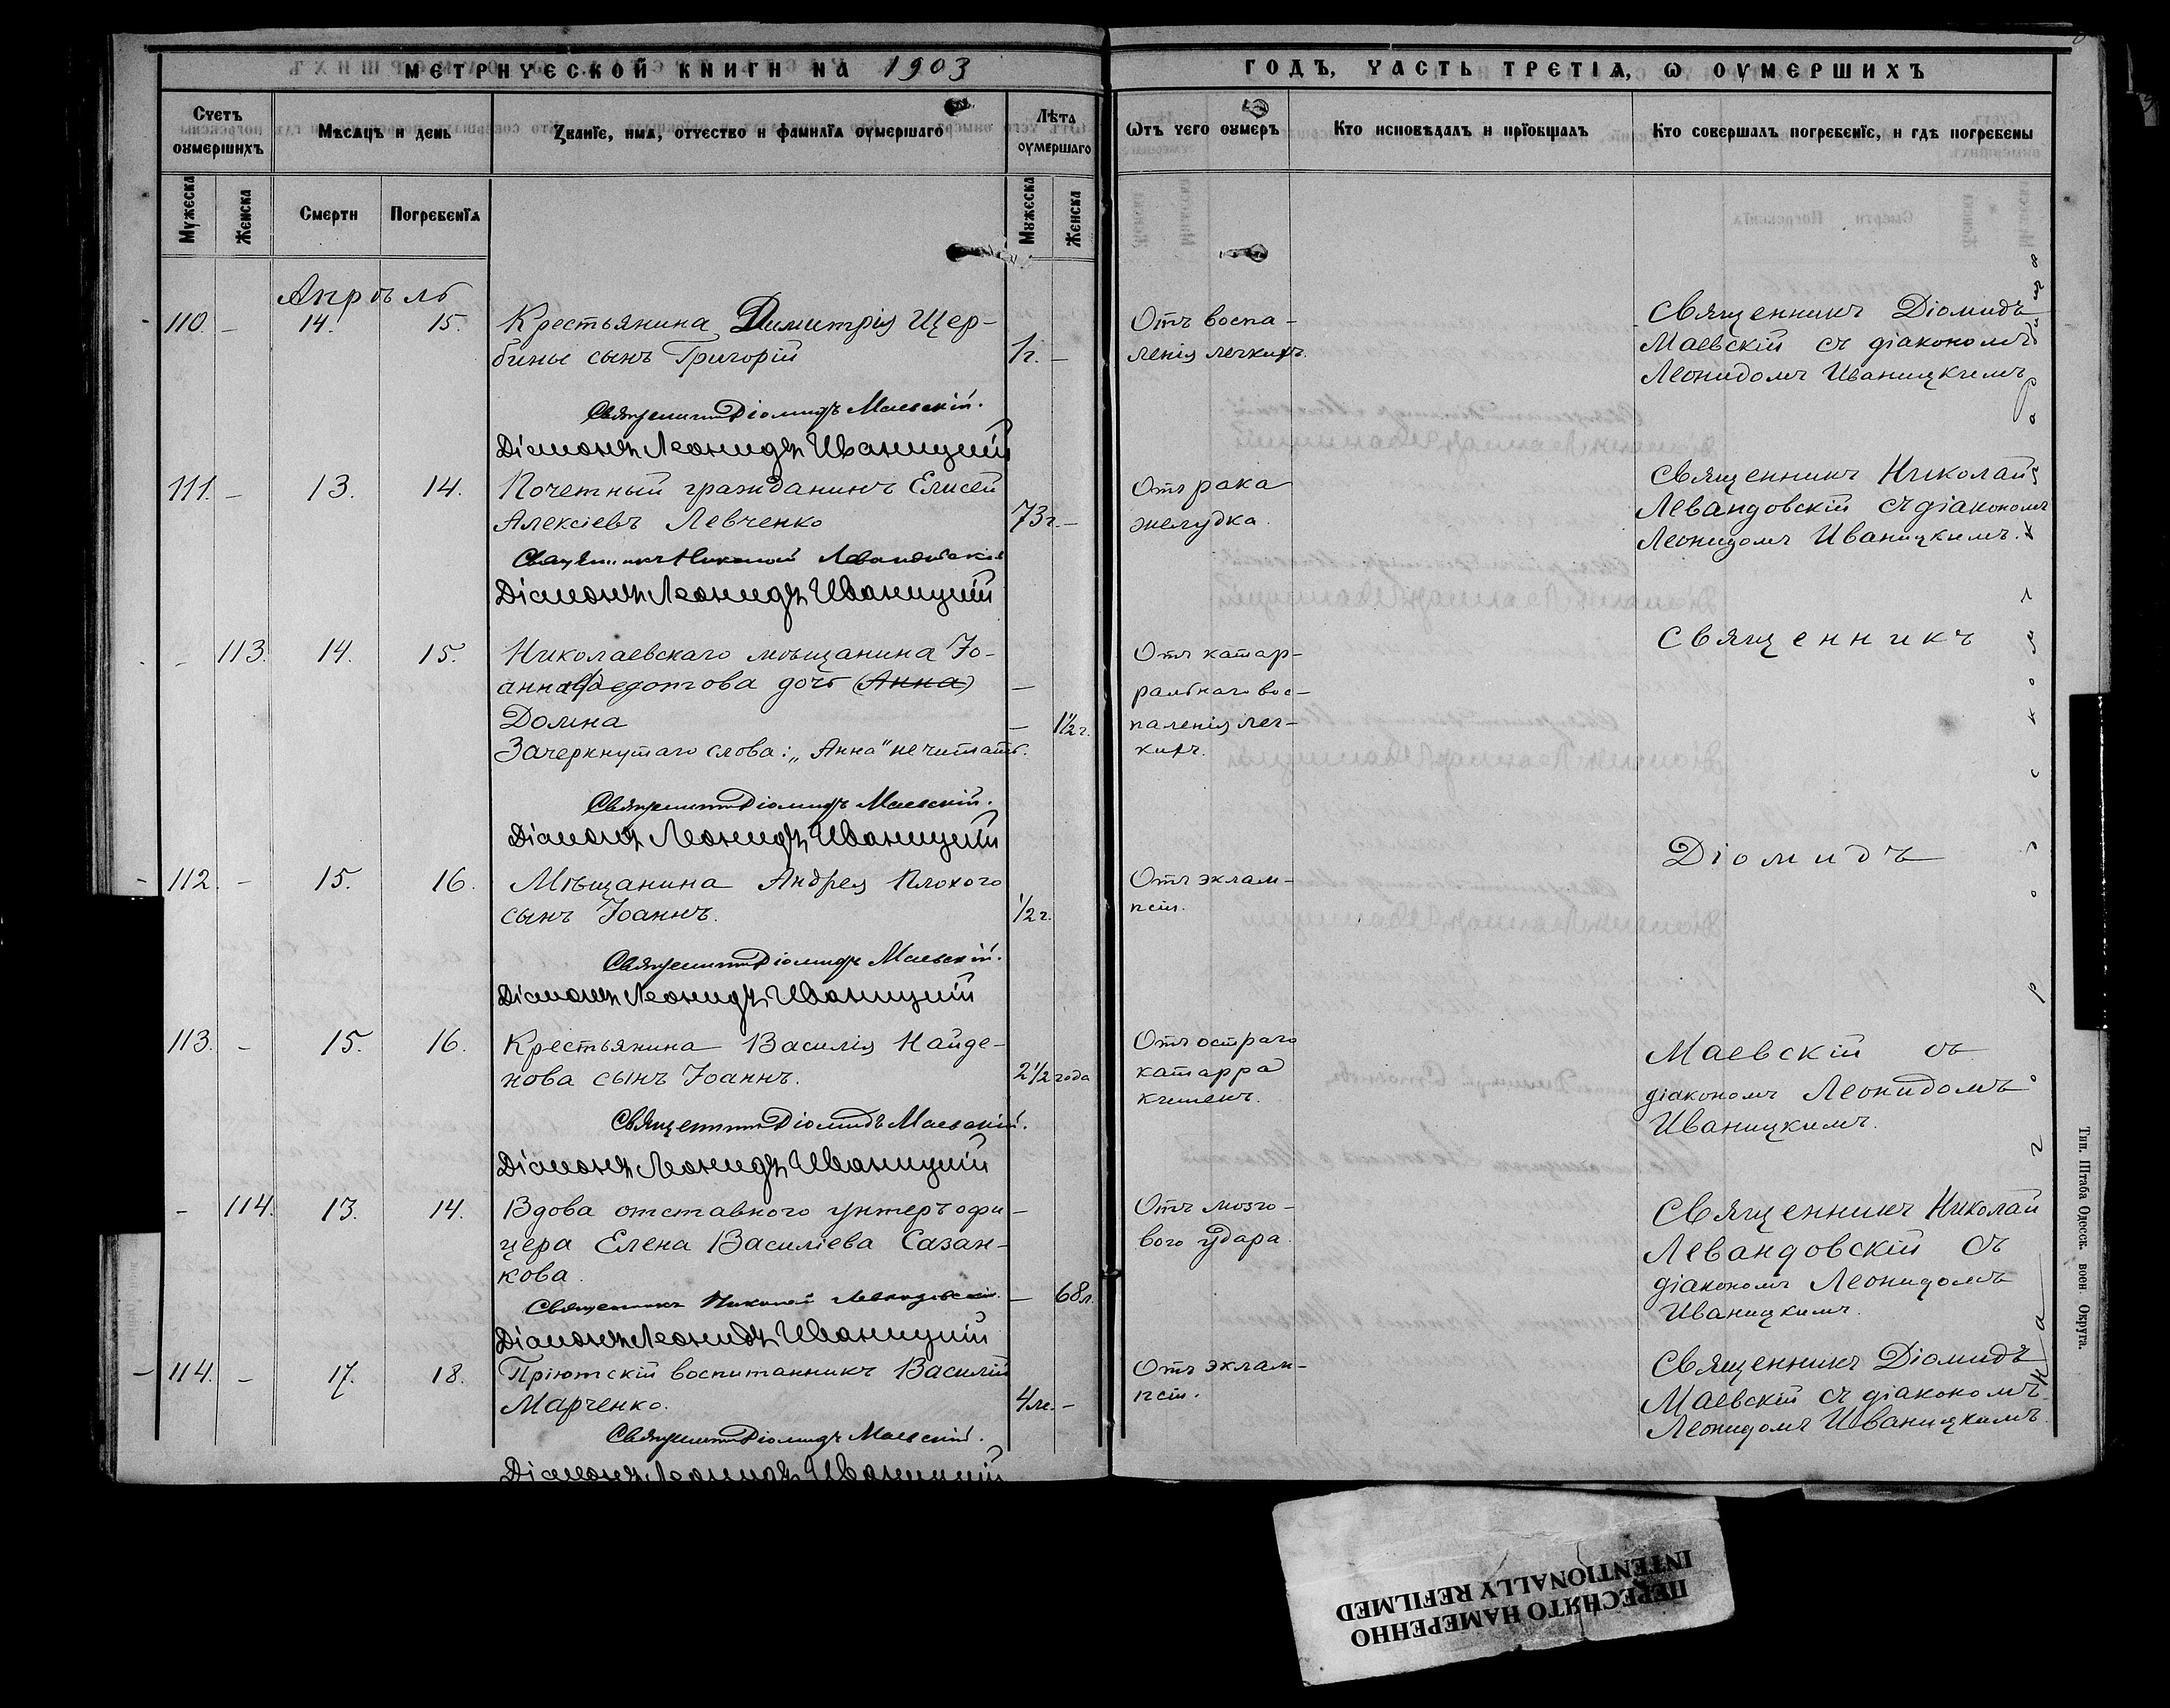 МЕТРИЧЕСКОЙ КНИГИ НА 1903
ГОДЪ, ЧАСТЬ ТРЕТІЯ, Ѡ ОУМЕРШИХЪ
Счетъ оумершихъ
Мѣсяцъ и день
Званіе, имя, отчество и фамилія оумершаго
Лѣта оумершаго
Ѿтъ чего оумеръ
Кто исповѣдалъ и пріобщалъ
Кто совершалъ погребеніе, и гдѣ погребены
Мужеска
Женска
Смерти
Погребенія
Мужеска
Женска
Апрѣль
110. - 14. 15. Крестьянина Димитрія Щер-
бины сынъ Григорій 1 г. -
Отъ воспа-
ленія легкихъ.
Священникъ Діомидъ
Маевскій съ діакономъ
Леонидомъ Иваницкимъ
Священникъ Діомидъ Маевскій.
Діаконъ Леонидъ Иваницкій
111. - 13. 14. Почетный гражданинъ Елисей
Алексіевъ Левченко 73 г. -
Отъ рака
желудка.
Священникъ Николай
Левандовскій съ діакономъ
Леонидомъ Иваницкимъ.
Священникъ Николай Левандовскій
Діаконъ Леонидъ Иваницкій
- 113. 14. 15. Николаевскаго мѣщанина Іо-
анна Федотова дочь (Анна) -
Домна - 1½ г.
Зачеркнутаго слова: „Анна" не читать.
Отъ катар-
ральнаго вос-
паленія лег-
кихъ.
Священникъ
Священникъ Діомидъ Маевскій.
Діаконъ Леонидъ Иваницкій
112. - 15. 16. Мѣщанина Андрея Плохого
сынъ Іоаннъ. ½ г.
Отъ эклам-
псіи.
Діомидъ
Священникъ Діомидъ Маевскій.
Діаконъ Леонидъ Иваницкій
113. - 15. 16. Крестьянина Василія Найде-
нова сынъ Іоаннъ. 2½ года
Отъ остраго
катарра
кишекъ.
Маевскій съ
діакономъ Леонидомъ
Иваницкимъ.
Священникъ Діомидъ Маевскій.
Діаконъ Леонидъ Иваницкій
- 114. 13. 14. Вдова отставного унтеръ офи-
цера Елена Василіева Сазан-
кова. - 68 л.
Отъ мозго-
вого удара.
Священникъ Николай
Левандовскій съ
діакономъ Леонидомъ
Иваницкимъ.
Священникъ Николай Левандовскій
Діаконъ Леонидъ Иваницкій
114. - 17. 18. Пріютскій воспитанникъ Василій
Марченко. 4 м. -
Отъ эклам-
псіи.
Священникъ Діомидъ
Маевскій съ діакономъ
Леонидомъ Иваницкимъ.
Священникъ Діомидъ Маевскій.
Діаконъ Леонидъ Иваницкій
Тип. Штаба Одесск. воен. Округа.
ПЕРЕСНЯТО НАМЕРЕННО
INTENTIONALLY REFILMED